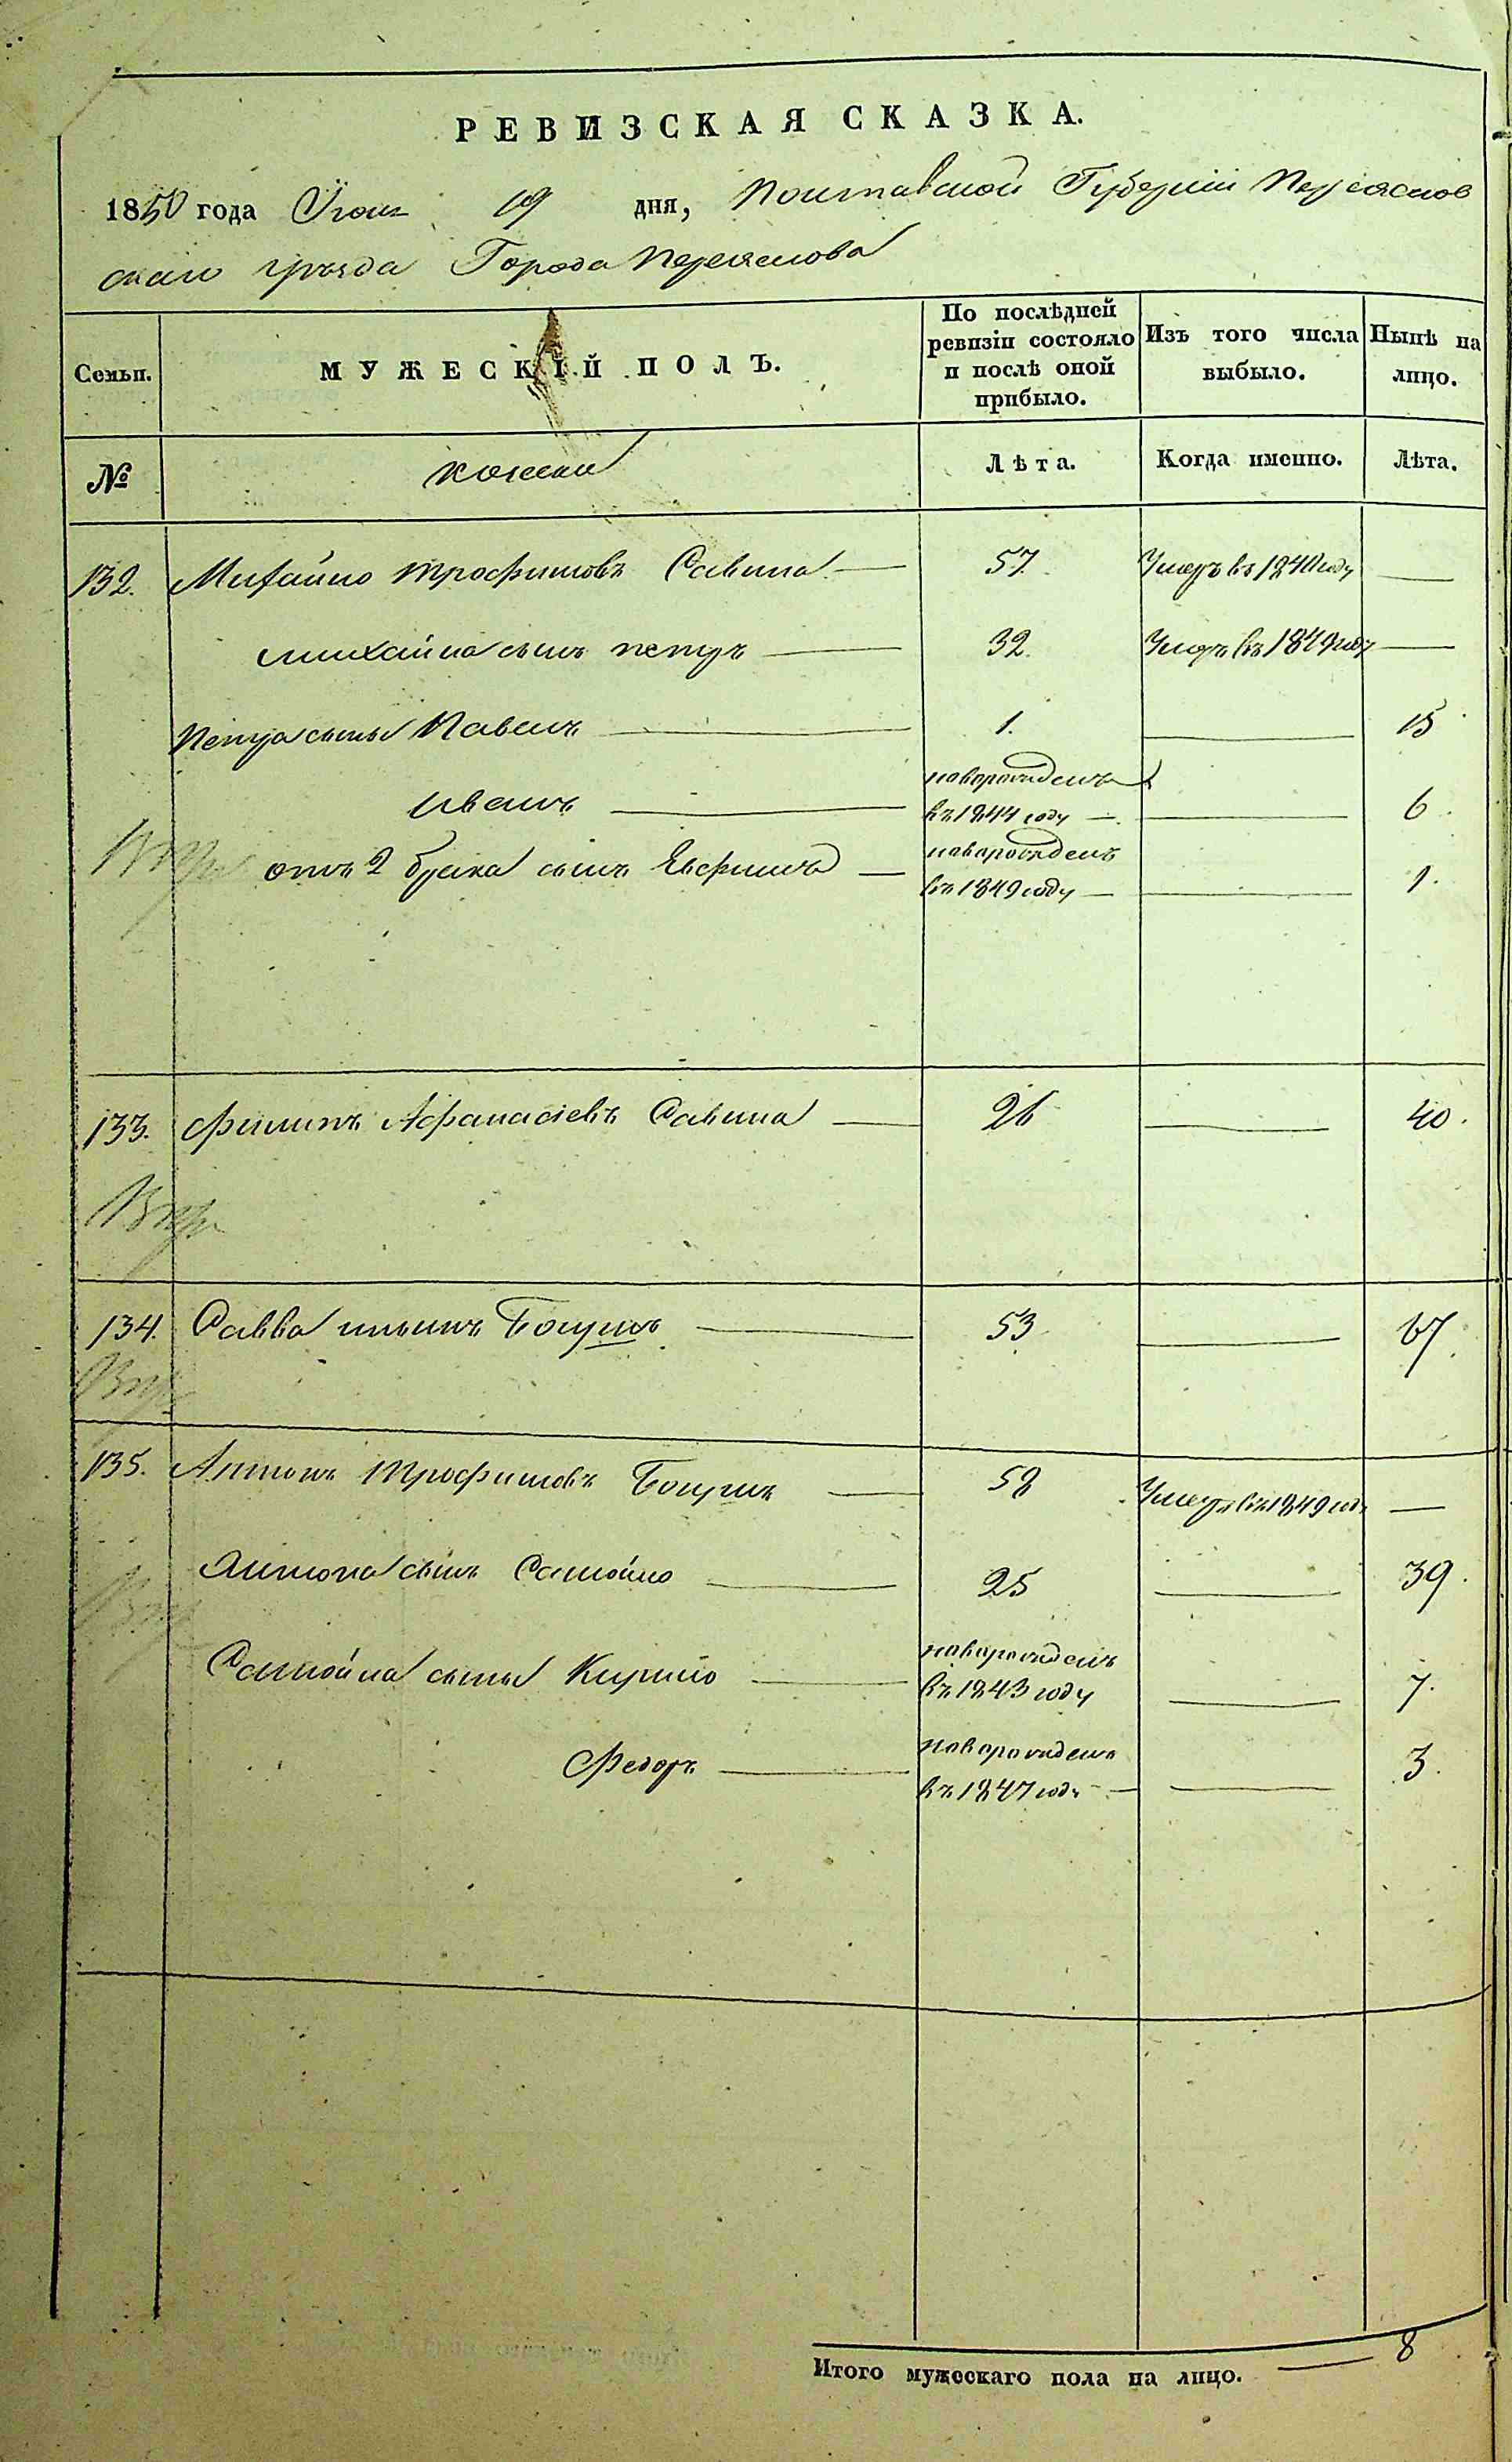 РЕВИЗСКАЯ СКАЗКА.
1850 года Іюня 19 дня, Полтавской Губерніи Переяслов
скаго уѣзда Города Переяслова
Семьи. МУЖЕСКІЙ ПОЛЪ. По послѣдней ревизіи состояло и послѣ оной прибыло. Изъ того числа выбыло. Нынѣ на лицо.
№ козаки Лѣта. Когда именно. Лѣта.
132. Михайло Трофимовъ Савина — 57. Умеръ въ 1840 году —
Михайла сынъ Петръ — 32. Умеръ въ 1849 году —
Петра сыны Павелъ — 1. — 15
Иванъ — новорожденъ въ 1844 году — — 6
отъ 2 брака сынъ Евфимъ — новорожденъ въ 1849 году — — 1.
133. Филипъ Афанасіевъ Савина — 26 — 40.
134. Савва Ильинъ — 53 — 67.
135. Антонъ Трофимовъ — 58 Умеръ въ 1849 году —
Антона сынъ Самойло — 25 — 39.
Самойла сыны Кирило — новорожденъ въ 1843 году — 7.
Федоръ — новорожденъ въ 1847 году — — 3.
Итого мужескаго пола на лицо. — 8